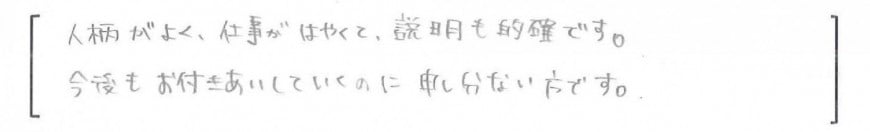 人柄がよく、仕事がはやくて、説明も的確です。
今後もお付きあいしていくのに申し分ない方です。